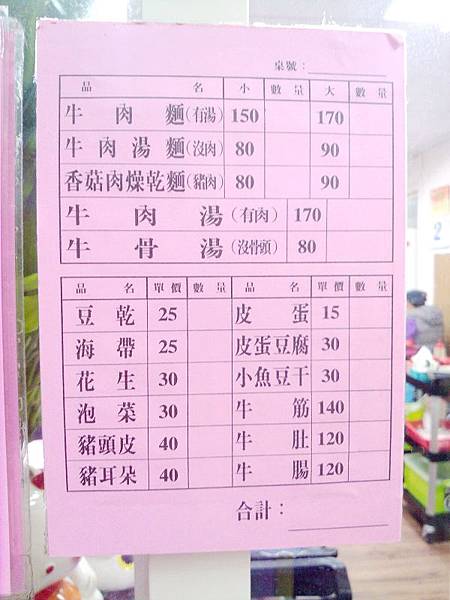 桌號：
品 名 小 數 量 大 數 量
牛肉麵(有湯) 150 170
牛肉湯麵(沒肉) 80 90
香菇肉燥乾麵(豬肉) 80 90
牛肉湯(有肉) 170
牛骨湯(沒骨頭) 80
品 名 單價 數 量 品 名 單價 數 量
豆乾 25 皮蛋 15
海帶 25 皮蛋豆腐 30
花生 30 小魚豆干 30
泡菜 30 牛筋 140
豬頭皮 40 牛肚 120
豬耳朵 40 牛腸 120
合計：
2